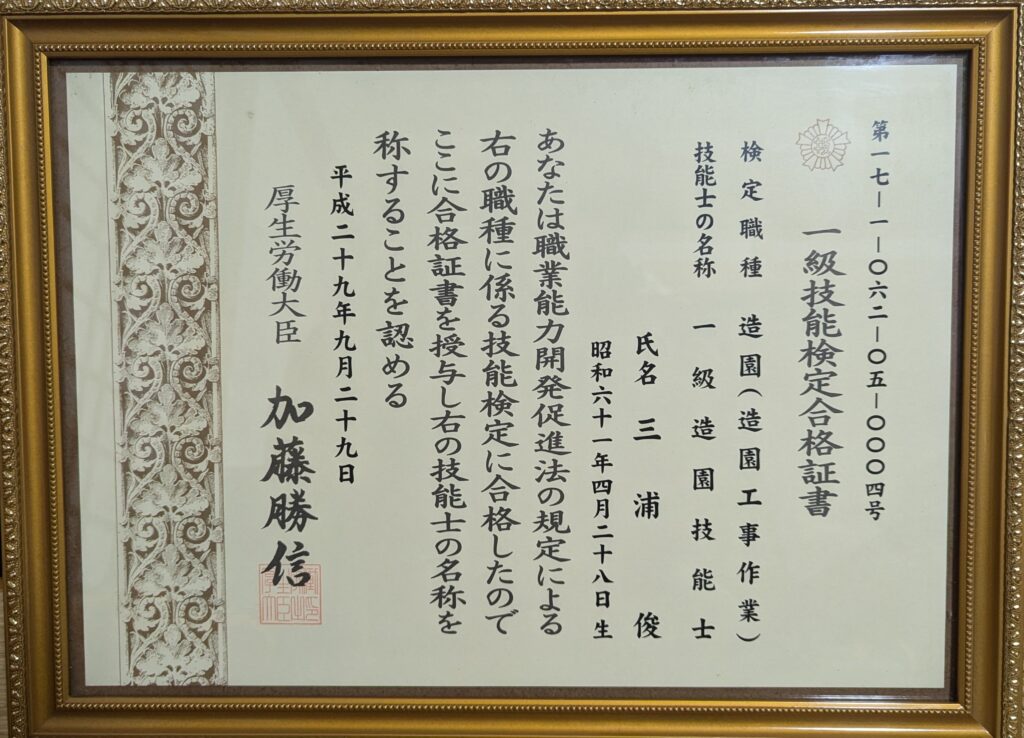 第一七―一―〇六二―〇五―〇〇〇四号
一級技能検定合格証書
検定職種 造園(造園工事作業)
技能士の名称 一級造園技能士
氏名 三浦俊
昭和六十一年四月二十八日生
あなたは職業能力開発促進法の規定による
右の職種に係る技能検定に合格したので
ここに合格証書を授与し右の技能士の名称を
称することを認める
平成二十九年九月二十九日
厚生労働大臣 加藤勝信